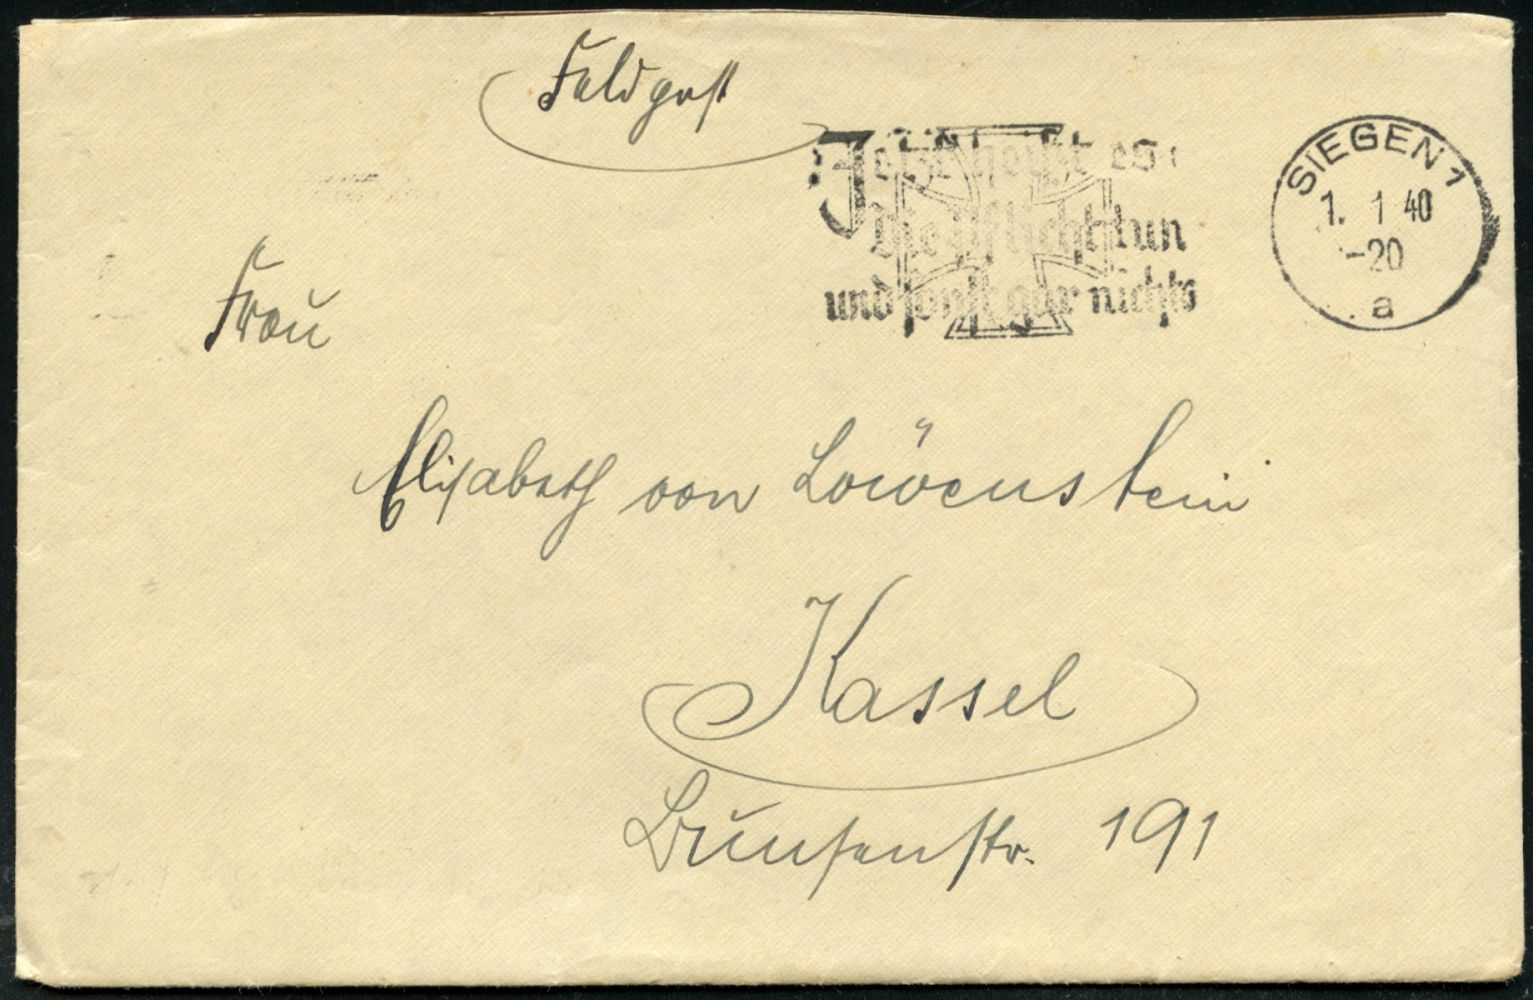 Feldpost
Jetzt heißt es:
Die Pflicht tun
und sonst gar nichts
SIEGEN 1
1. 1 40
-20
a
Frau
Elisabeth von Löwenstein
Kassel
Bunsenstr. 191